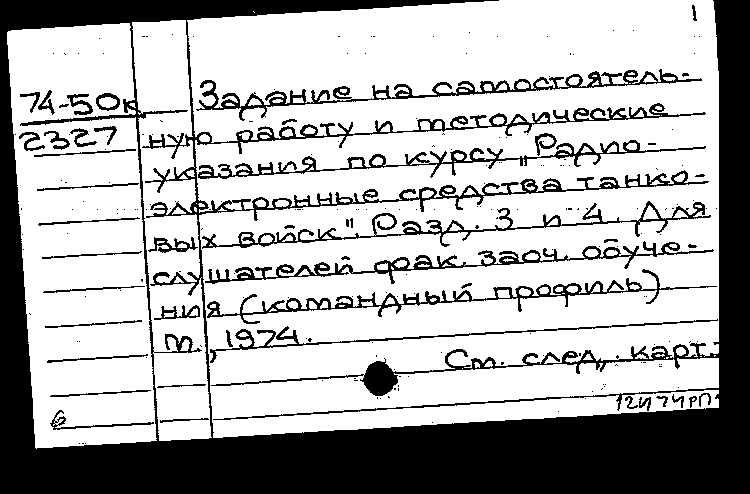 1
74-50к Задание на самостоятель-
2327 ную работу и методические
указания по курсу „Радио-
электронные средства танко-
вых войск". Разд. 3 и 4. Для
слушателей фак. заоч. обуче-
ния (командный профиль)
М., 1974.
См. след. карт.
6